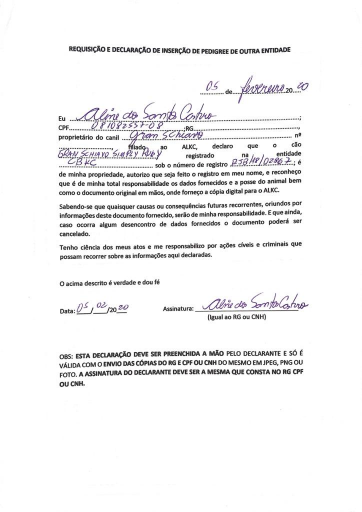 REQUISIÇÃO E DECLARAÇÃO DE INSERÇÃO DE PEDIGREE DE OUTRA ENTIDADE
05 de fevereiro 20 20
Eu Aline dos Santos Castro ;
CPF ;RG ,
proprietário do canil Gran Schiavo nº
filiado ao ALKC, declaro que o cão
GRAN SCHIAVO registrado na entidade
CBKC sob o número de registro ; é
de minha propriedade, autorizo que seja feito o registro em meu nome, e reconheço
que é de minha total responsabilidade os dados fornecidos e a posse do animal bem
como o documento original em mãos, onde forneço a cópia digital para o ALKC.
Sabendo-se que quaisquer causas ou consequências futuras recorrentes, oriundos por
informações deste documento fornecido, serão de minha responsabilidade. E que ainda,
caso ocorra algum desencontro de dados fornecidos o documento poderá ser
cancelado.
Tenho ciência dos meus atos e me responsabilizo por ações cíveis e criminais que
possam recorrer sobre as informações aqui declaradas.
O acima descrito é verdade e dou fé
Data: 05 / 02 /20 20 Assinatura: Aline dos Santos Castro
(Igual ao RG ou CNH)
OBS: ESTA DECLARAÇÃO DEVE SER PREENCHIDA A MÃO PELO DECLARANTE E SÓ É
VÁLIDA COM O ENVIO DAS CÓPIAS DO RG E CPF OU CNH DO MESMO EM JPEG, PNG OU
FOTO. A ASSINATURA DO DECLARANTE DEVE SER A MESMA QUE CONSTA NO RG CPF
OU CNH.